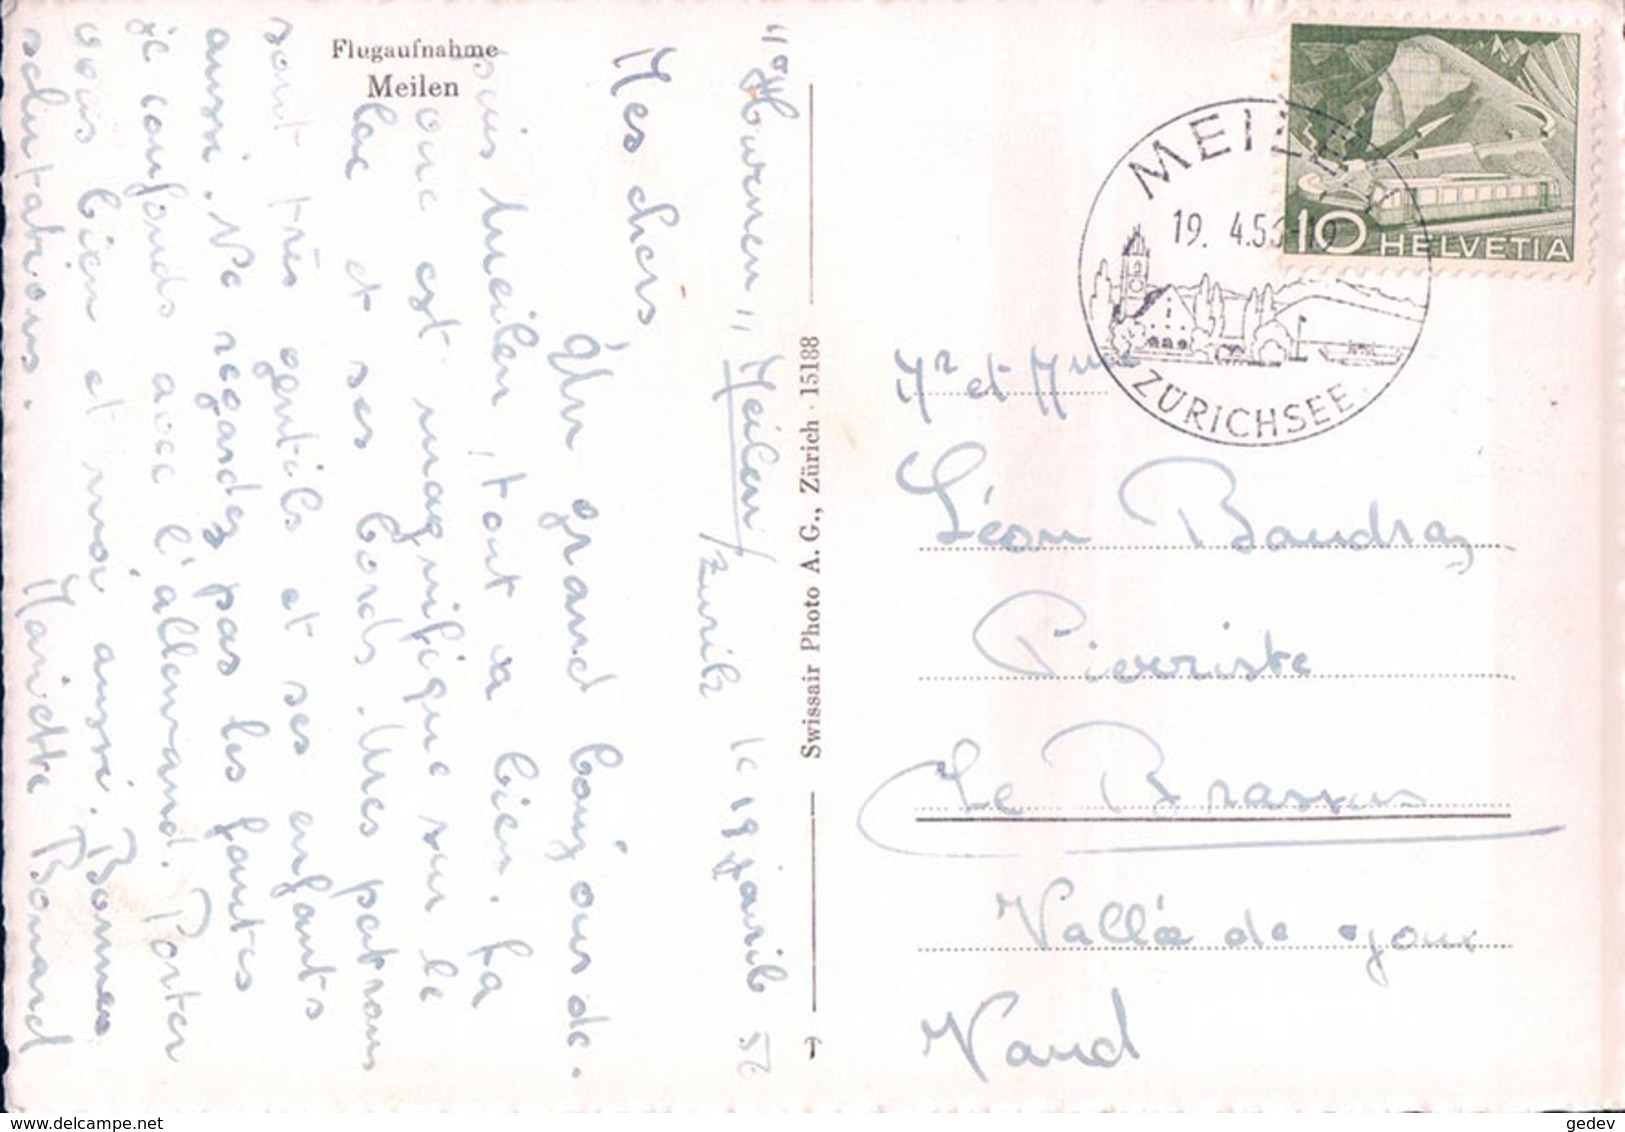 Flugaufnahme
Meilen
"Hornen" Meilen/Zurich le 19 avril 56
Mes chers
Un grand bonjour de-
puis Meilen, tout va bien. La
vue est magnifique sur le
lac et ses bords. Mes patrons
sont très gentils et ses enfants
aussi. Ne regardez pas les fautes
je confonds avec l'allemand. Porter
vous bien et moi aussi. Bonnes
salutations. Mariette Bonard
Swissair Photo A. G., Zürich · 15188
MEILEN
19. 4.56-19
ZÜRICHSEE
10 HELVETIA
Mr et Mme
Léon Baudraz
Pierriste
Le Brassus
Vallée de Joux
Vaud
gedev